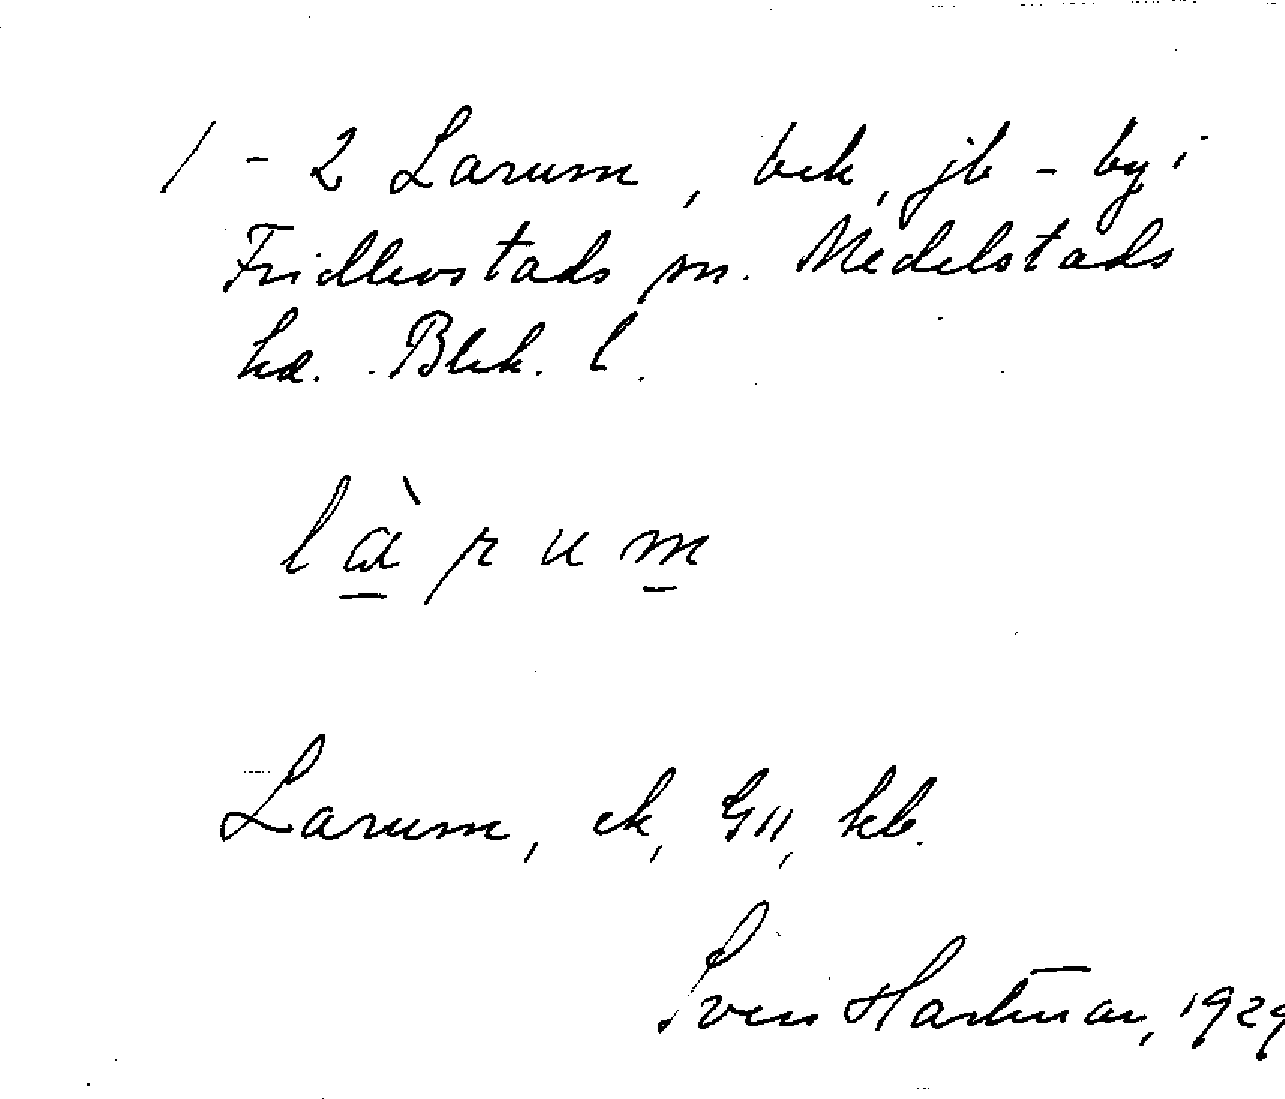 1-2 Larum, bek, jb-by i
Fridlevstads sn. Medelstads
hd. Blek. l.
làrum
Larum, ek, GII, kb.
Sven Hartman, 1929